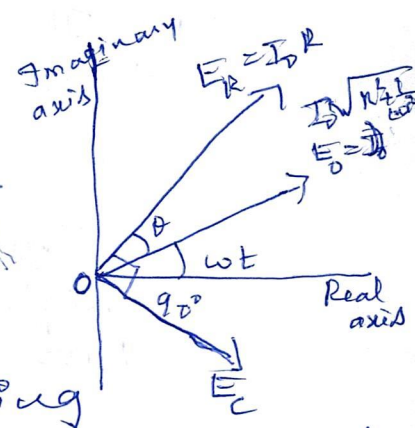 Imaginary
axis
E_R = I_0 R
I_0 √(R² + 1/
E_0 =
θ
ωt
O
90°
Real
axis
E_C
ing